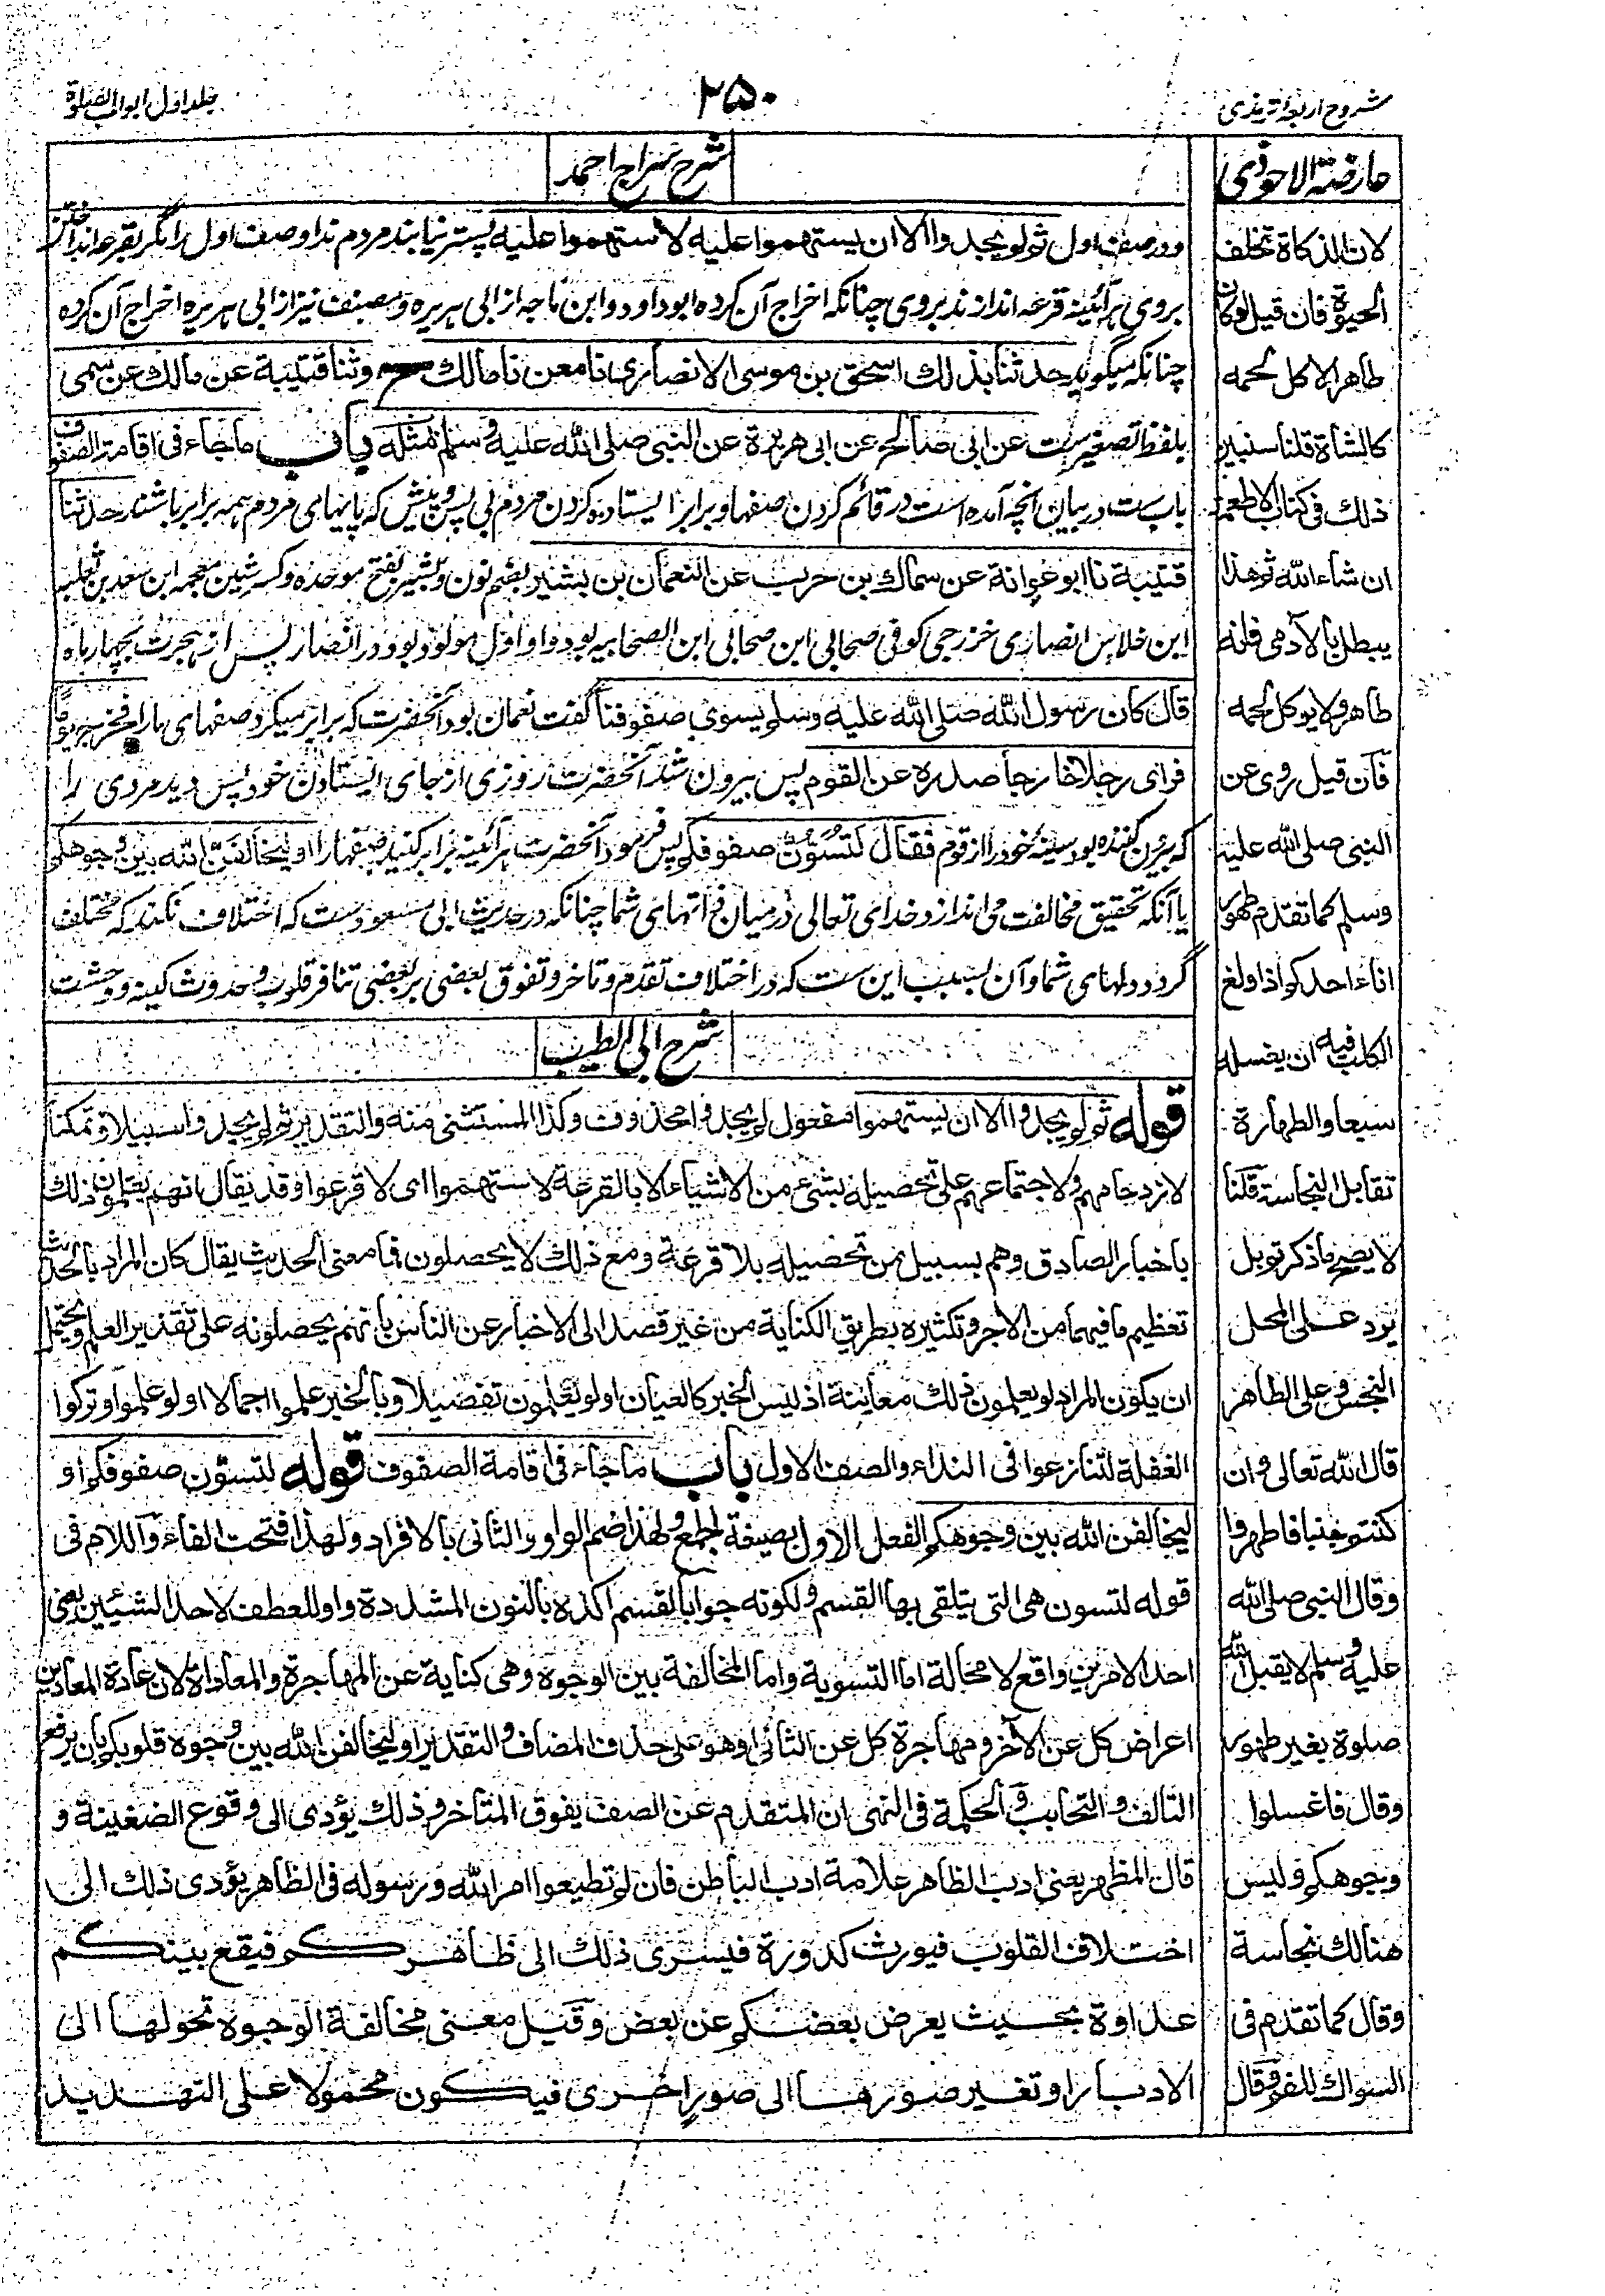 شروح اربعۂ ترمذی
۲۵۰
جلد اول ابواب الصلوة
عارضة الاحوذی
لان الذكاة تخلف
الحيوة فان قيل لو كان
طاهرا لاكل لحمه
كالشاة قلنا سنبين
ذلك فى كتاب الاطعمة
ان شاء الله ثم هذا
يبطل بالآدمى فانه
طاهر ولا يوكل لحمه
فان قيل روى عن
النبى صلى الله عليه
وسلم كما تقدم طهور
اناء احدكم اذا ولغ
الكلب فيه ان يغسله
سبعا والطهارة
تقابل النجاسة قلنا
لا يصح ما ذكرتم بل
يرد على المحل
النجس وعلى الطاهر
قال الله تعالى وان
كنتم جنبا فاطهروا
وقال النبى صلى الله
عليه وسلم لا يقبل الله
صلوة بغير طهور
وقال فاغسلوا
وجوهكم وليس
هنالك نجاسة
وقال كما تقدم فى
السواك للفم وقال
شرح سراج احمد
ودر صف اول ثم لم يجدوا الا ان يستهموا عليه لاستهموا عليه پستر نیابند مردم ندا وصف اول را مگر بقرعه انداختن
بروی هر آئینه قرعه اندازند بروی چنانکه اخراج آن کرده ابوداود وابن ماجه از ابی هریره ومصنف نیز از ابی هریره اخراج آن کرده
چنانکه میگوید حدثنا بذلك اسحق بن موسى الانصارى نا معن نا مالك ح وثنا قتيبة عن مالك عن سمى
بلفظ تصغیرست عن ابى صالح عن ابى هريرة عن النبى صلى الله عليه وسلم مثله باب ما جاء فى اقامة الصفوف
باب ست در بیان آنچه آمده است در قائم کردن صفها وبرابر ایستاده کردن مردم بی پس وپیش که پایهای مردم همه برابر باشند حدثنا
قتيبة نا ابو عوانة عن سماك بن حرب عن النعمان بن بشير بضم نون وبشیر بفتح موحده وکسر شین معجمه ابن سعد بن ثعلبه
ابن خلاس انصاری خزرجی کوفی صحابی ابن صحابی ابن الصحابیه بوده او اول مولود بود در انصار پس از هجرت بچهارده ماه
قال كان رسول الله صلى الله عليه وسلم يسوى صفوفنا گفت نعمان بود آنحضرت که برابر میکرد صفهای ما را فخرج يوما
فراى رجلا خارجا صدره عن القوم پس بیرون شد آنحضرت روزی از جای ایستادن خود پس دید مردی را
که بیرون کننده بود سینۀ خود را از قوم فقال لتسوّن صفوفكم پس فرمود آنحضرت هر آئینه برابر کنید صفها را او ليخالفنّ الله بين وجوهكم
یا آنکه تحقیق مخالفت می اندازد خدای تعالی در میان ذاتهای شما چنانکه در حدیث ابی مسعود ست که اختلاف نکنید که مختلف
گردد دلهای شما وآن بسبب این ست که در اختلاف تقدم وتاخر وتفوق بعضی بر بعضی تنافر قلوب وحدوث کینه ووحشت
شرح ابی الطیب
قوله ثم لم يجدوا الا ان يستهموا مفعول لم يجدوا محذوف وكذا المستثنى منه والتقدير ثم لم يجدوا سبيلا وتمكنا
لازدحامهم ولاجتماعهم على تحصيله بشىء من الاشياء الا بالقرعة لاستهموا اى لاقرعوا وقد يقال انهم يعلمون ذلك
باخبار الصادق وهم بسبيل من تحصيله بلا قرعة ومع ذلك لا يحصلون فما معنى الحديث يقال كان المراد بالحديث
تعظيم ما فيهما من الاجر وتكثيره بطريق الكناية من غير قصد الى الاخبار عن الناس بانهم يحصلونه على تقدير العلم ويحتمل
ان يكون المراد لو يعلمون ذلك معاينة اذ ليس الخبر كالعيان او لو يعلمون تفصيلا وبالخبر علموا اجمالا او لو علموا وتركوا
الغفلة لتنازعوا فى النداء والصف الاول باب ما جاء فى اقامة الصفوف قوله لتسوّن صفوفكم او
ليخالفن الله بين وجوهكم الفعل الاول بصيغة الجمع ولهذا ضم الواو والثانى بالافراد ولهذا فتحت الفاء واللام فى
قوله لتسون هى التى يتلقى بها القسم ولكونه جوابا لقسم اكده بالنون المشددة واو للعطف لاحد الشيئين يعنى
احد الامرين واقع لا محالة اما التسوية واما المخالفة بين الوجوه وهى كناية عن المهاجرة والمعاداة لان عادة المعادين
اعراض كل عن الآخر ومهاجرة كل عن الثانى او هو على حذف المضاف والتقدير او ليخالفن الله بين وجوه قلوبكم بان يرفع
التالف والتحابب والحكمة فى النهى ان المتقدم عن الصف يفوق المتاخر وذلك يؤدى الى وقوع الضغينة و
قال المظهر يعنى ادب الظاهر علامة ادب الباطن فان لم تطيعوا امر الله ورسوله فى الظاهر يؤدى ذلك الى
اختلاف القلوب فيورث كدورة فيسرى ذلك الى ظاهركم فيقع بينكم
عداوة بحيث يعرض بعضكم عن بعض وقيل معنى مخالفة الوجوه تحولها الى
الادبار او تغير صورها الى صور اخرى فيكون محمولا على التهديد